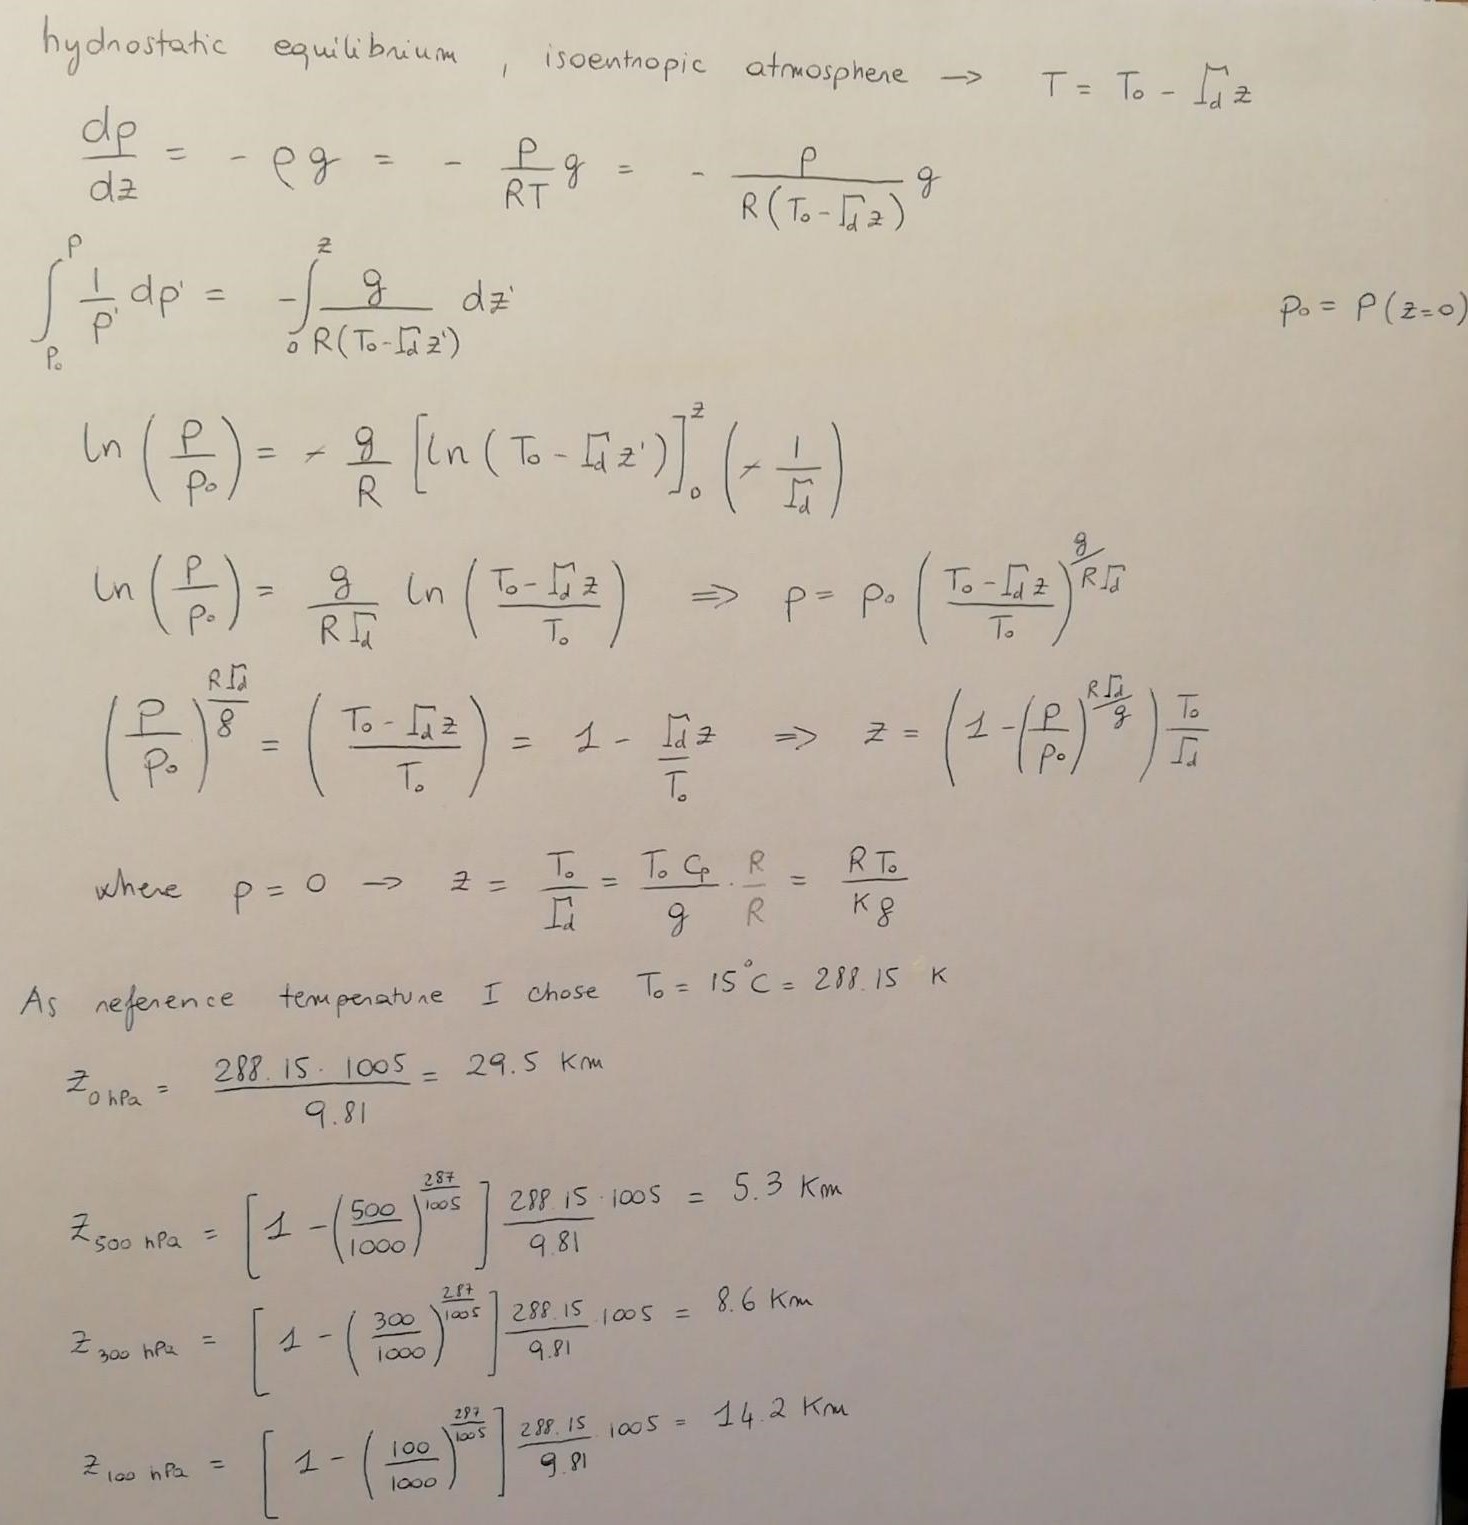 hydrostatic equilibrium , isoentropic atmosphere → T = T₀ - Γ_d z
dp/dz = - ρg = - p/(RT) g = - p/(R(T₀-Γ_d z)) g
∫_{p₀}^{p} 1/p' dp' = -∫_0^z g/(R(T₀-Γ_d z')) dz' p₀ = p(z=0)
ln(p/p₀) = - g/R [ln(T₀ - Γ_d z')]_0^z (- 1/Γ_d)
ln(p/p₀) = g/(RΓ_d) ln((T₀-Γ_d z)/T₀) ⇒ p = p₀ ((T₀-Γ_d z)/T₀)^{g/(RΓ_d)}
(p/p₀)^{RΓ_d/g} = ((T₀-Γ_d z)/T₀) = 1 - Γ_d z/T₀ ⇒ z = (1-(p/p₀)^{RΓ_d/g}) T₀/Γ_d
where p = 0 → z = T₀/Γ_d = T₀ Cp/g · R/R = R T₀/(K g)
As reference temperature I chose T₀ = 15°C = 288.15 K
Z_{0 hPa} = (288.15 · 1005)/9.81 = 29.5 Km
Z_{500 hPa} = [1 - (500/1000)^{287/1005}] 288.15/9.81 · 1005 = 5.3 Km
Z_{300 hPa} = [1 - (300/1000)^{287/1005}] 288.15/9.81 · 1005 = 8.6 Km
Z_{100 hPa} = [1 - (100/1000)^{287/1005}] 288.15/9.81 · 1005 = 14.2 Km